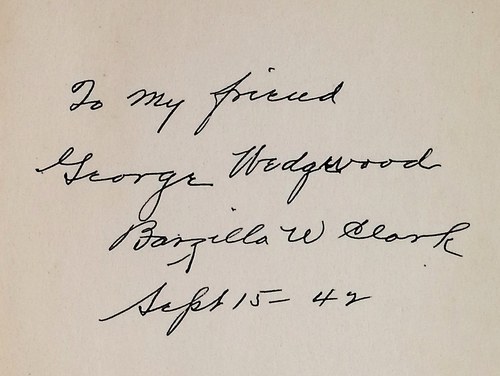 To my friend
George Wedgwood
Barzilla W Clark
Sept 15 - 42